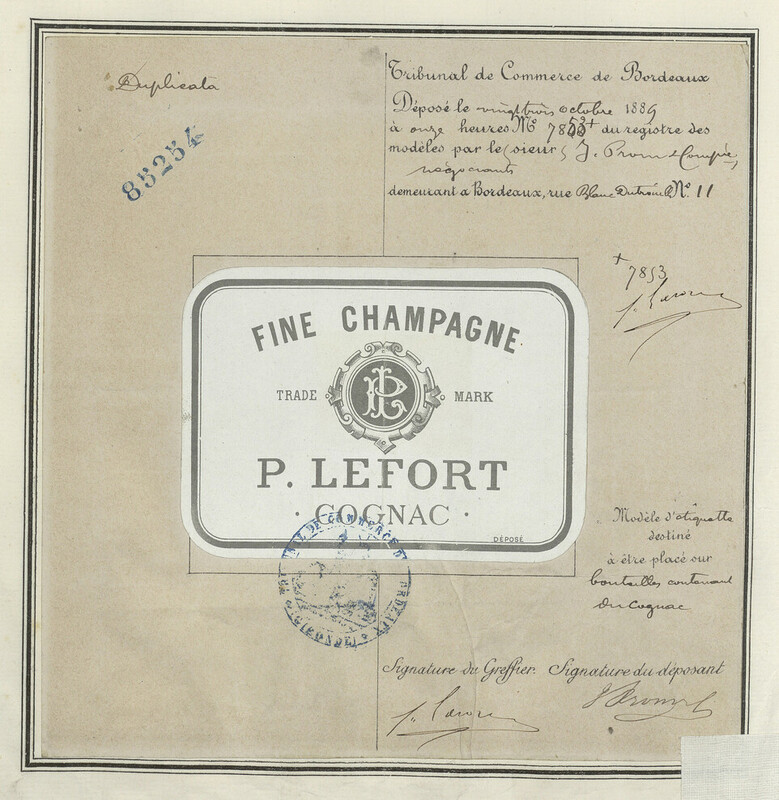 Duplicata
85254
Tribunal de Commerce de Bordeaux
Déposé le vingt trois octobre 1889
à onze heures No 78 + du registre des
modèles par le sieur J. Prom & Compie,
négociants
demeurant à Bordeaux, rue Blanc Dutrouilh No. 11
+ 7853
FINE CHAMPAGNE
TRADE MARK
P. LEFORT
· COGNAC ·
DÉPOSÉ
TRIBUNAL DE COMMERCE DE BORDEAUX
(GIRONDE)
Modèle d'étiquette
destiné
à être placé sur
bouteilles contenant
du Cognac
Signature du Greffier. Signature du déposant